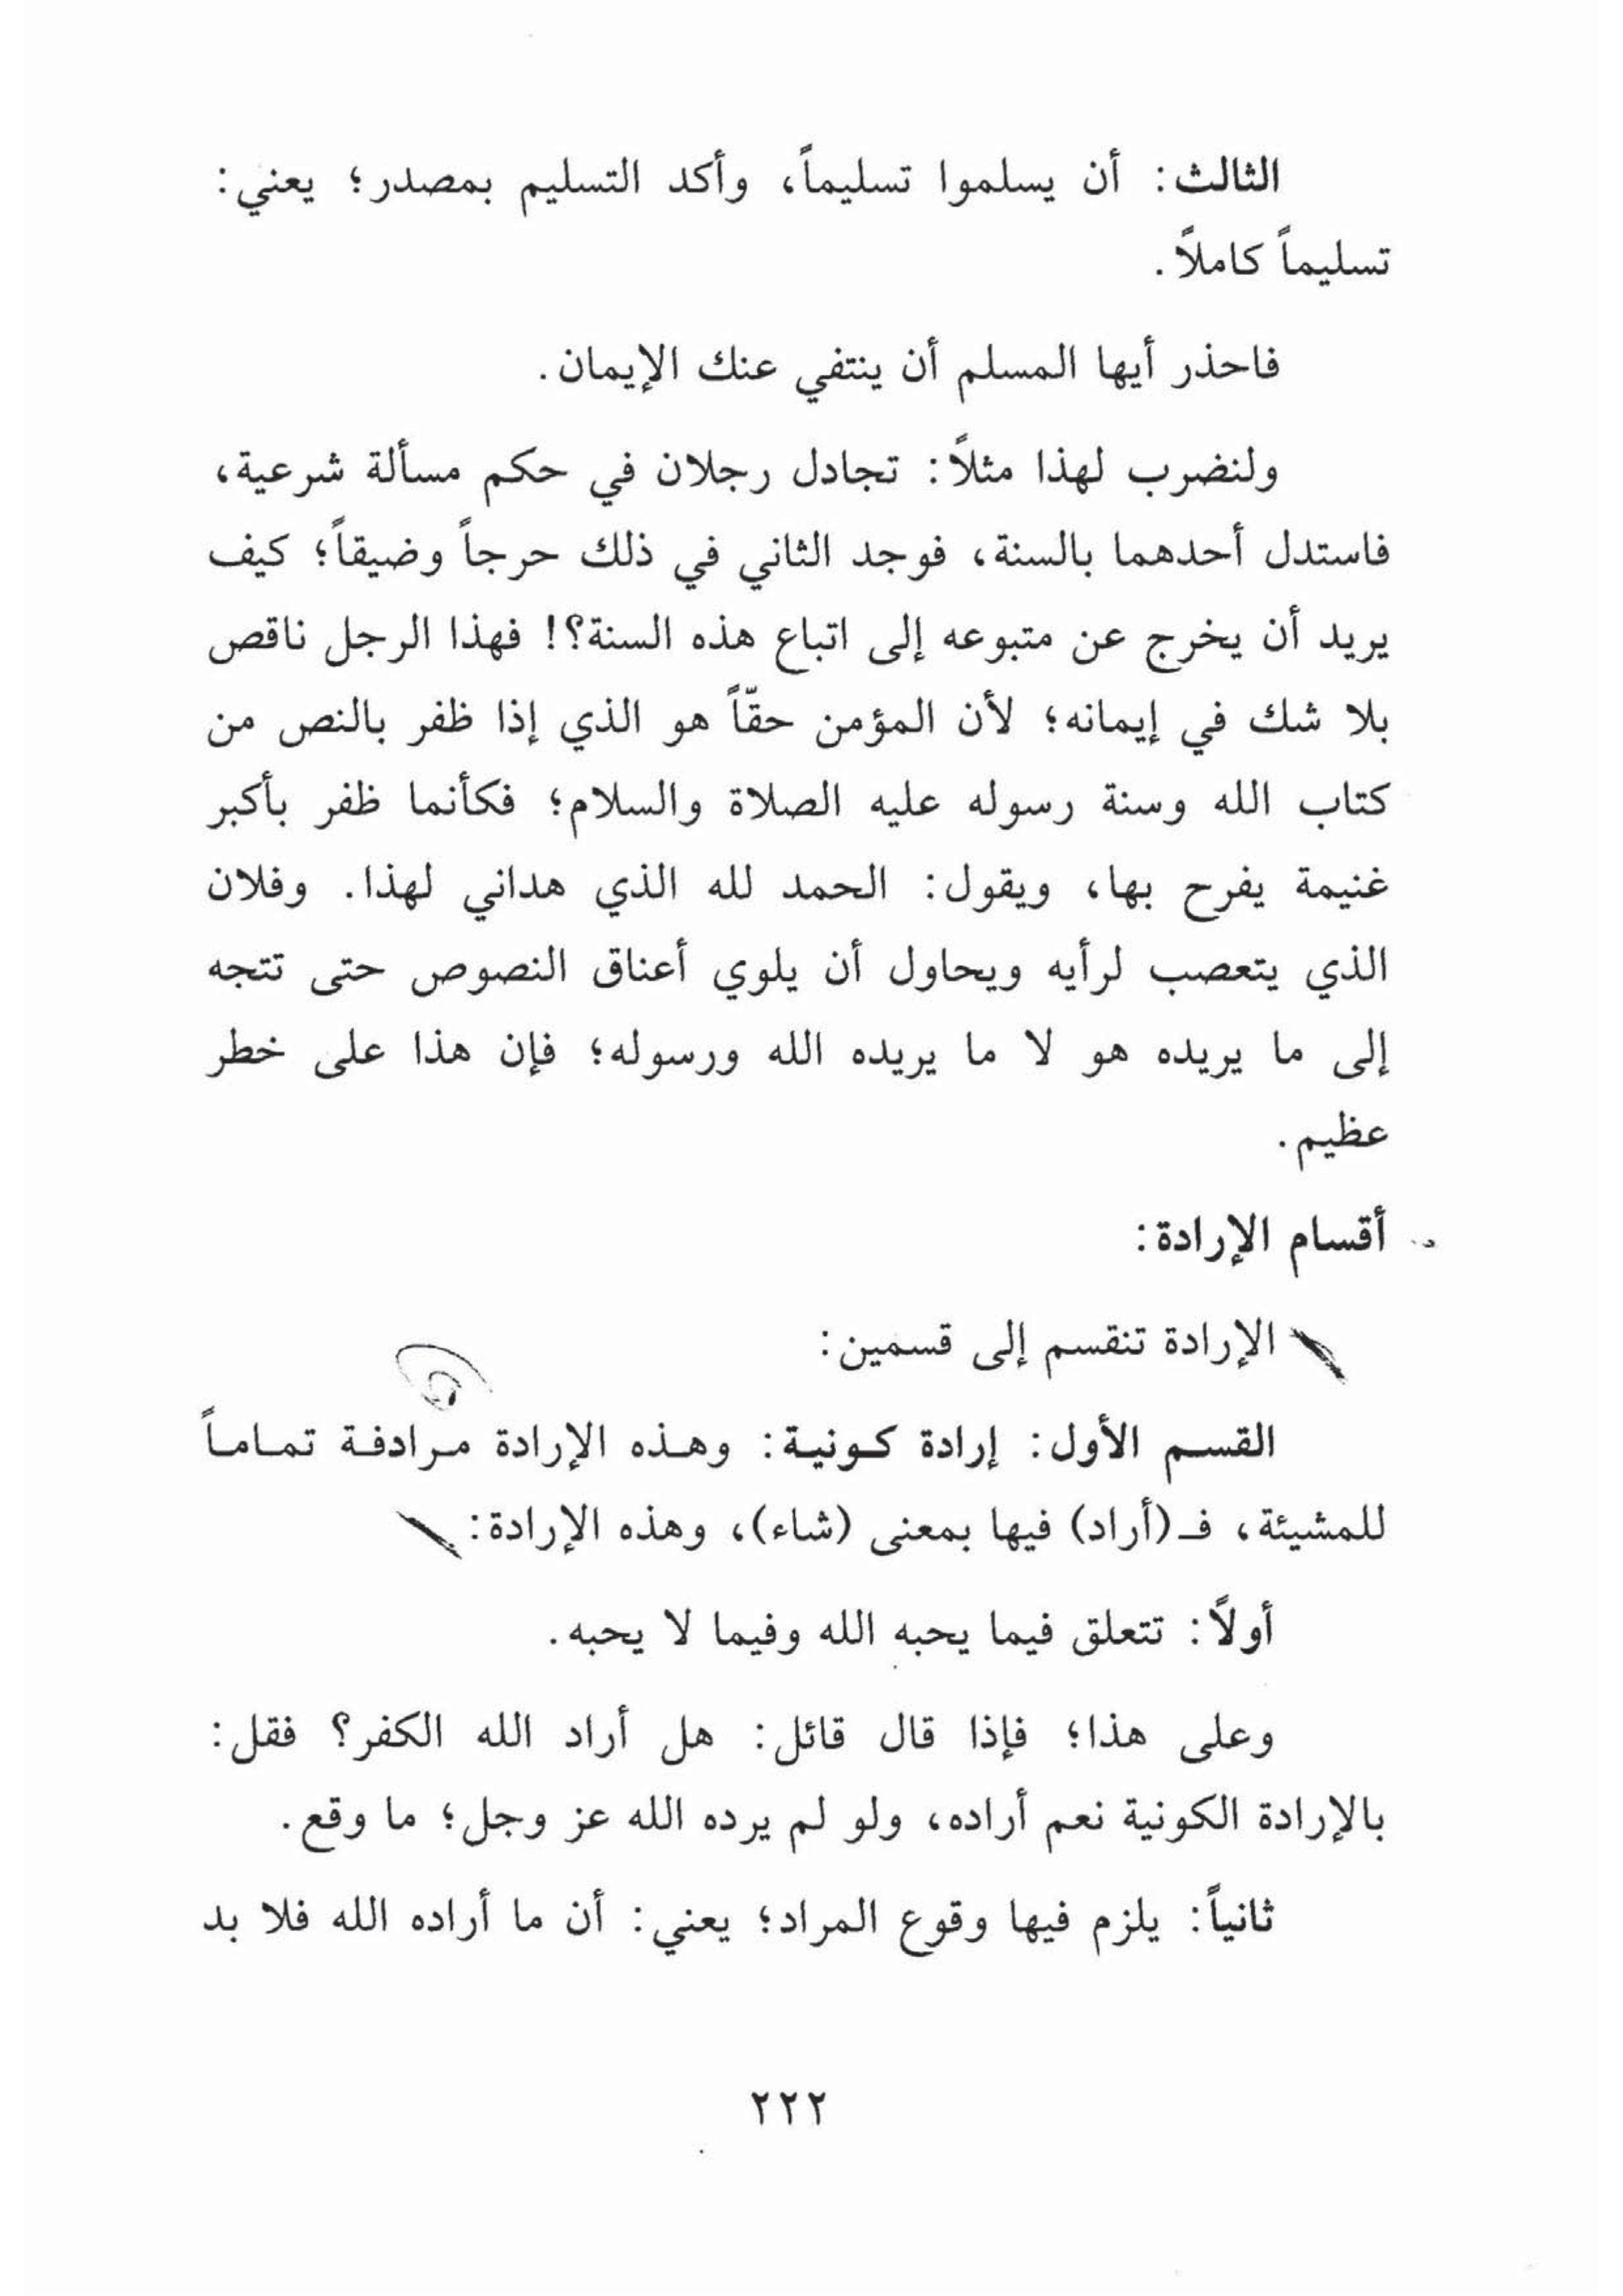 الثالث: أن يسلموا تسليماً، وأكد التسليم بمصدر؛ يعني:
تسليماً كاملاً.
فاحذر أيها المسلم أن ينتفي عنك الإيمان.
ولنضرب لهذا مثلاً: تجادل رجلان في حكم مسألة شرعية،
فاستدل أحدهما بالسنة، فوجد الثاني في ذلك حرجاً وضيقاً؛ كيف
يريد أن يخرج عن متبوعه إلى اتباع هذه السنة؟! فهذا الرجل ناقص
بلا شك في إيمانه؛ لأن المؤمن حقّاً هو الذي إذا ظفر بالنص من
كتاب الله وسنة رسوله عليه الصلاة والسلام؛ فكأنما ظفر بأكبر
غنيمة يفرح بها، ويقول: الحمد لله الذي هداني لهذا. وفلان
الذي يتعصب لرأيه ويحاول أن يلوي أعناق النصوص حتى تتجه
إلى ما يريده هو لا ما يريده الله ورسوله؛ فإن هذا على خطر
عظيم.
أقسام الإرادة:
الإرادة تنقسم إلى قسمين:
القسم الأول: إرادة كونية: وهذه الإرادة مرادفة تماماً
للمشيئة، فـ(أراد) فيها بمعنى (شاء)، وهذه الإرادة:
أولاً: تتعلق فيما يحبه الله وفيما لا يحبه.
وعلى هذا؛ فإذا قال قائل: هل أراد الله الكفر؟ فقل:
بالإرادة الكونية نعم أراده، ولو لم يرده الله عز وجل؛ ما وقع.
ثانياً: يلزم فيها وقوع المراد؛ يعني: أن ما أراده الله فلا بد
٢٢٢